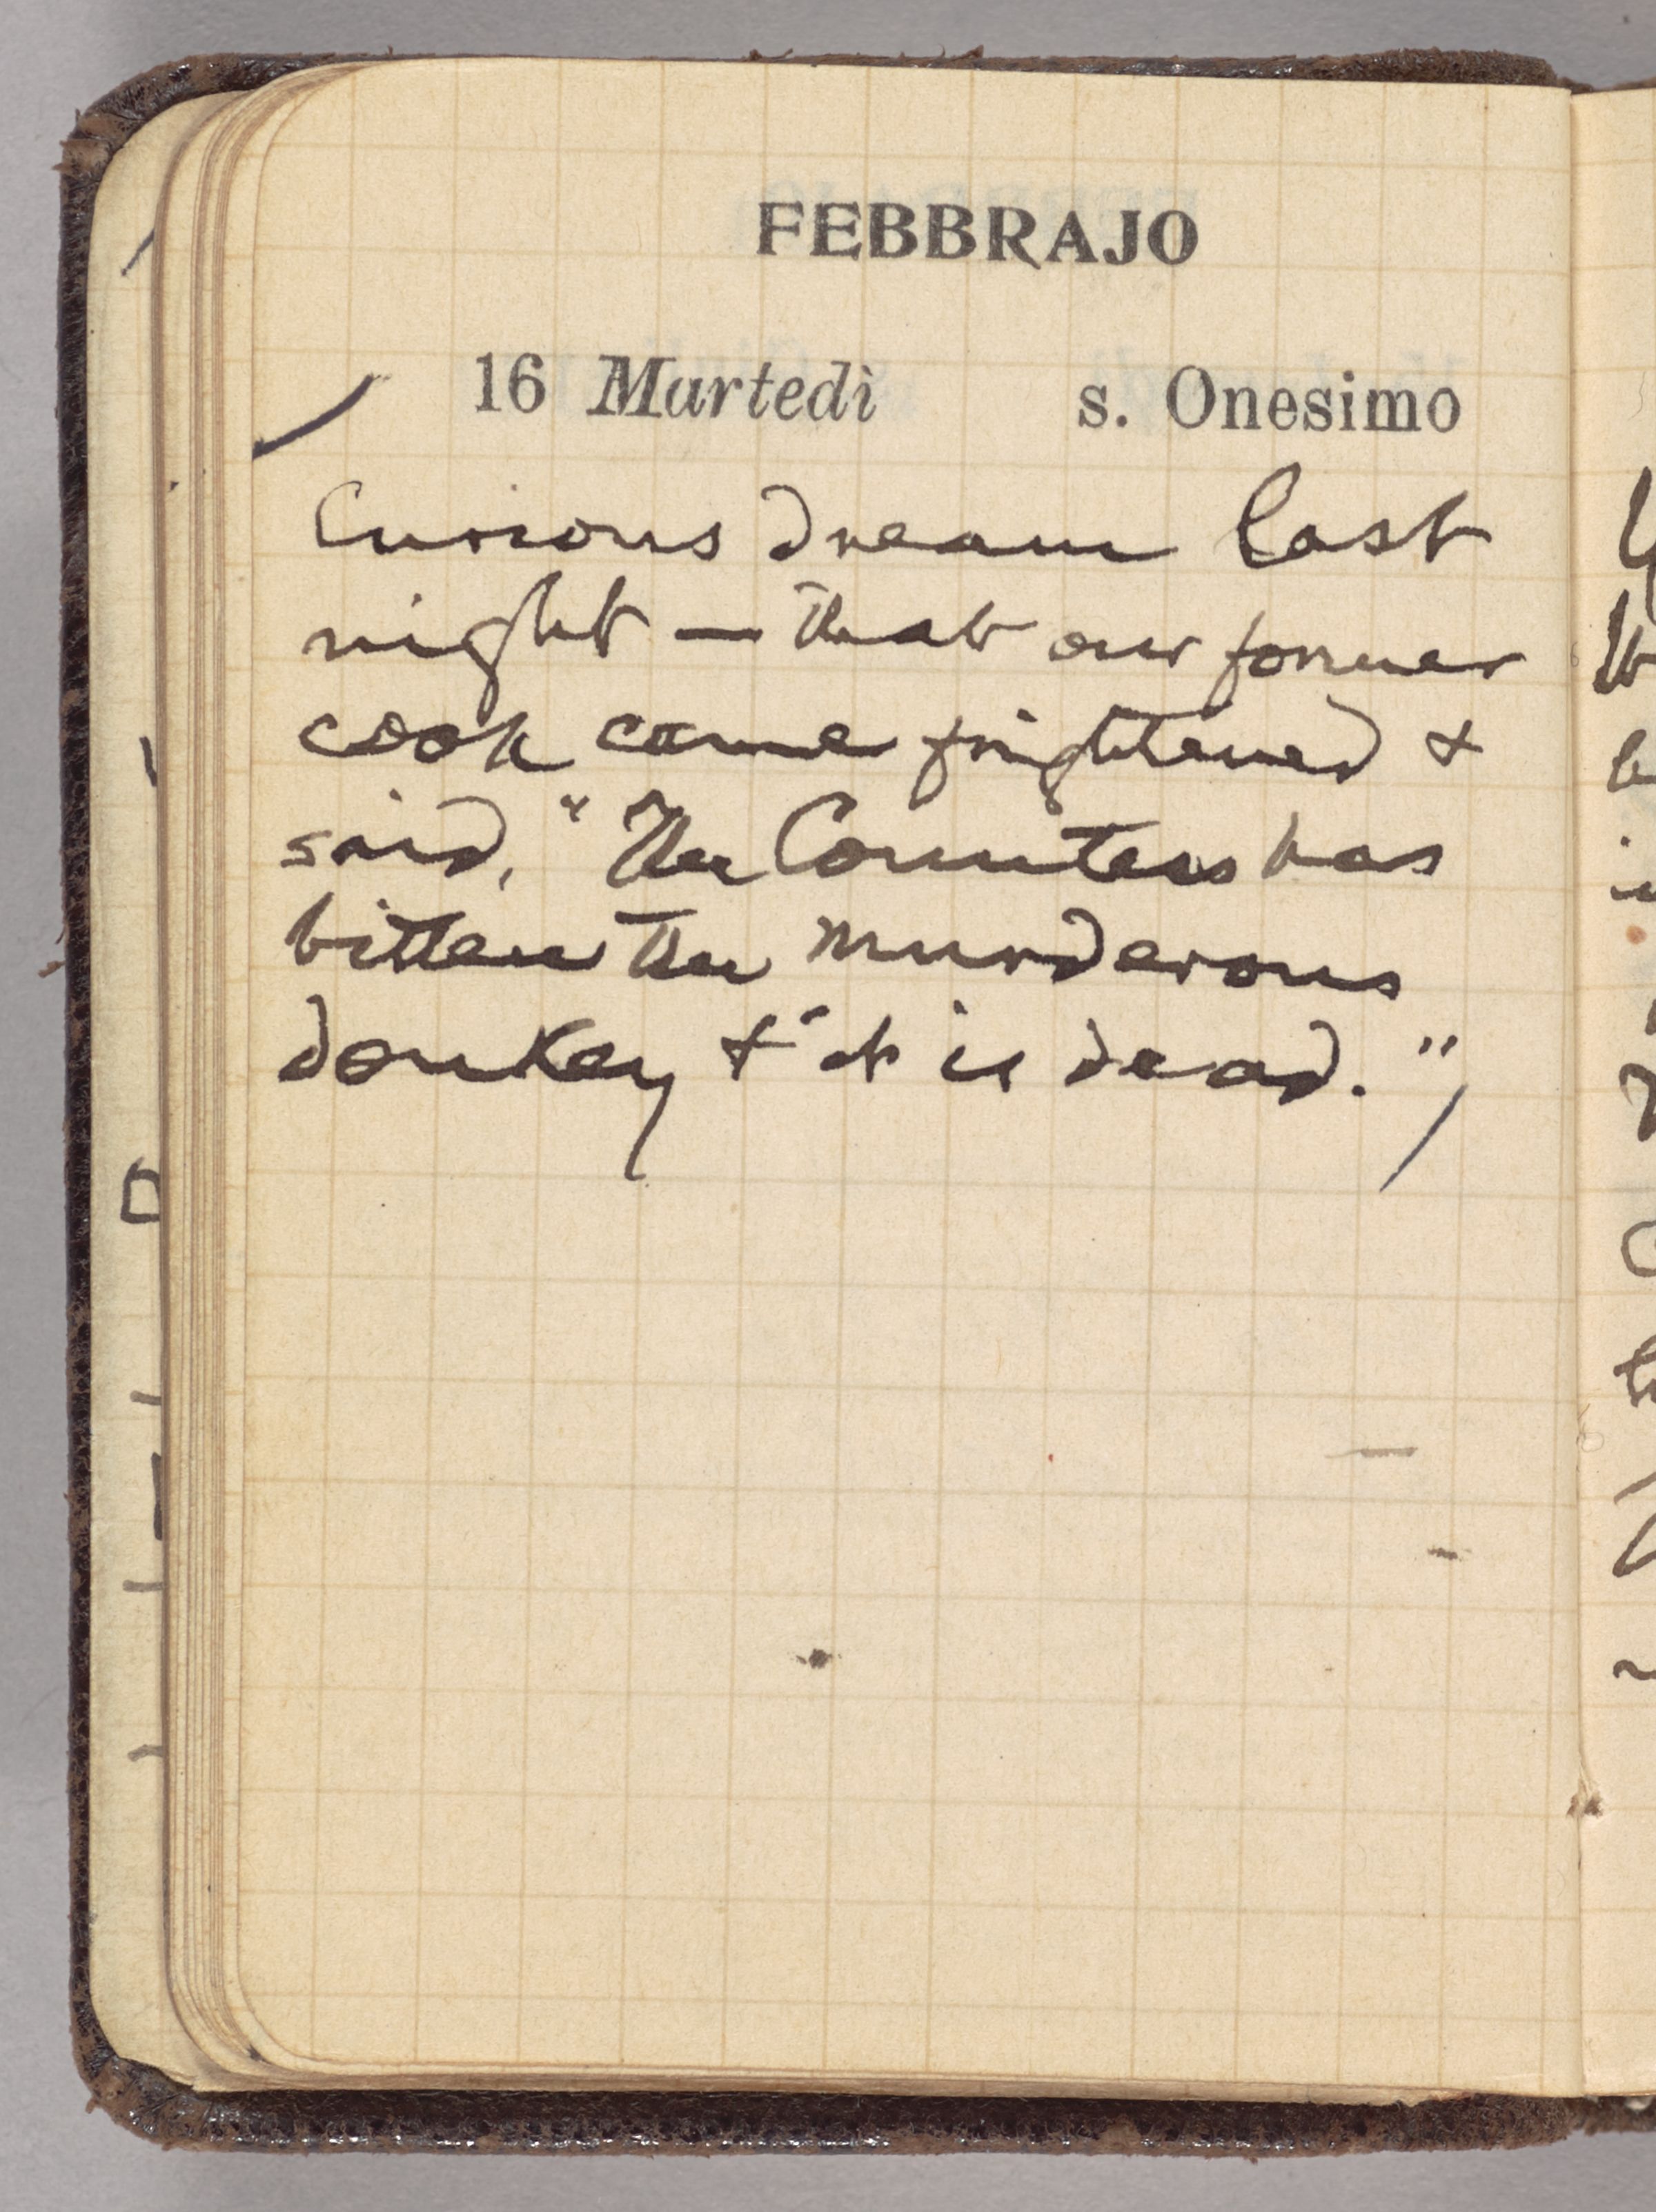 FEBBRAJO
16 Martedì s. Onesimo
Curious dream last
night — that our former
cook came frightened &
said, "The Countess has
bitten the murderous
donkey & it is dead."